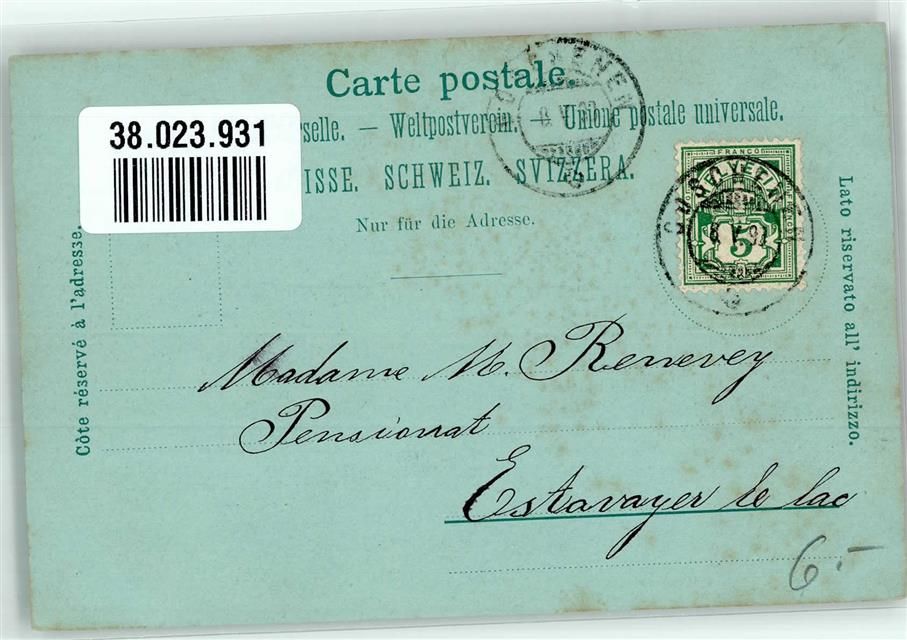 Carte postale.
selle. — Weltpostverein. — Unione postale universale.
ISSE. SCHWEIZ. SVIZZERA.
Nur für die Adresse.
38.023.931
Côte réservé à l'adresse.
Lato riservato all' indirizzo.
FRANCO
5
Madame M. Renevey
Pensionat
Estavayer le lac
6.-